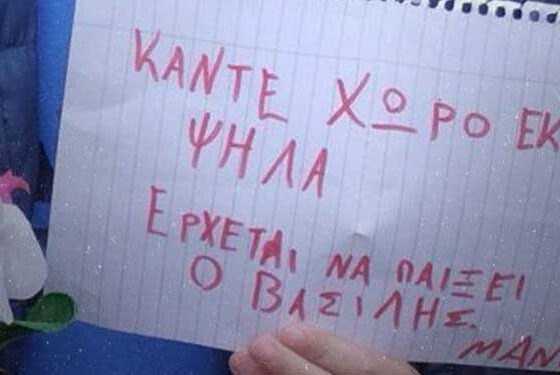 ΚΑΝΤΕ ΧΩΡΟ ΕΚ
ΨΗΛΑ
ΕΡΧΕΤΑΙ ΝΑ ΠΑΙΞΕΙ
Ο ΒΑΣΙΛΗΣ.
ΜΑΝ